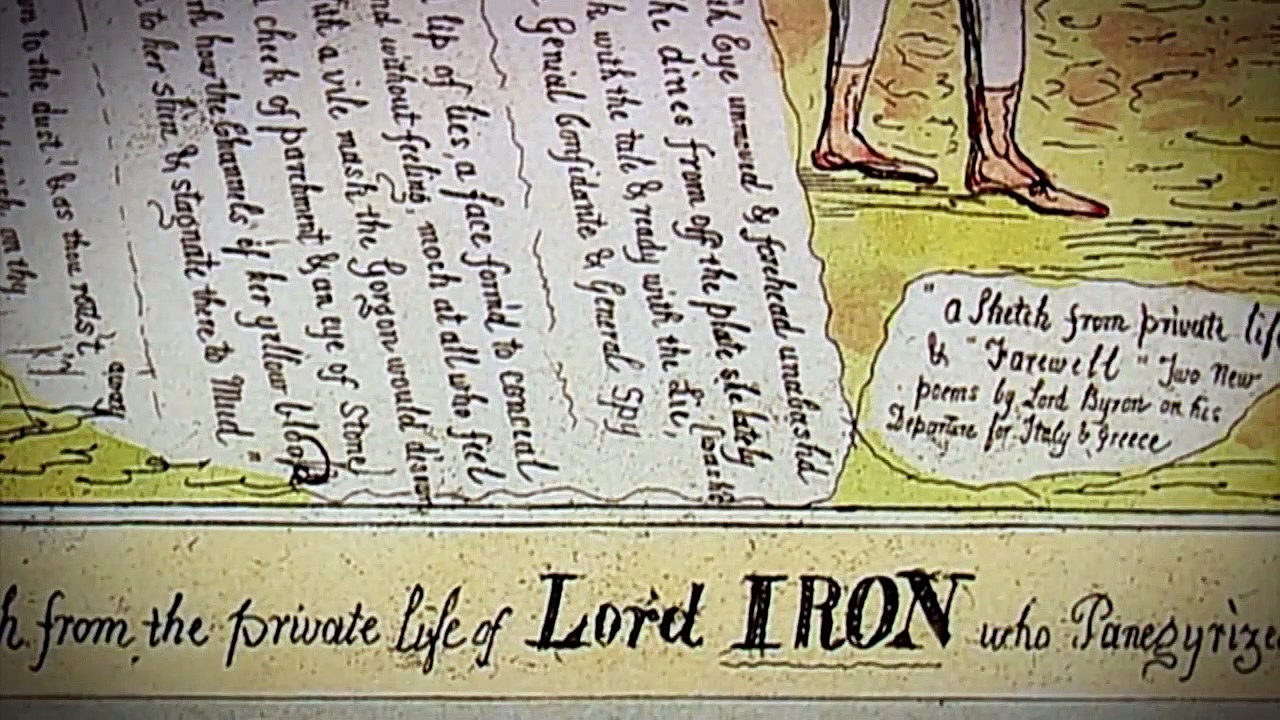 ith Eye unmoved & forehead unabash'd
he dines from off the plate she lately wash'd
k with the tale & ready with the Lie,
Genial Confidante & General Spy
lip of lies, a face form'd to conceal
nd without feeling, mock at all who feel
ith a vile mask the Gorgon would disown
cheek of parchment & an eye of Stone
rk how the Channels of her yellow blood
to her skin, & stagnate there to Mud"
wn to the dust! & as thou rott'st away
on thy
"a Sketch from private life
& "Farewell" Two New
poems by Lord Byron on his
Departure for Italy & Greece
h from the private life of Lord IRON who Panegyrize